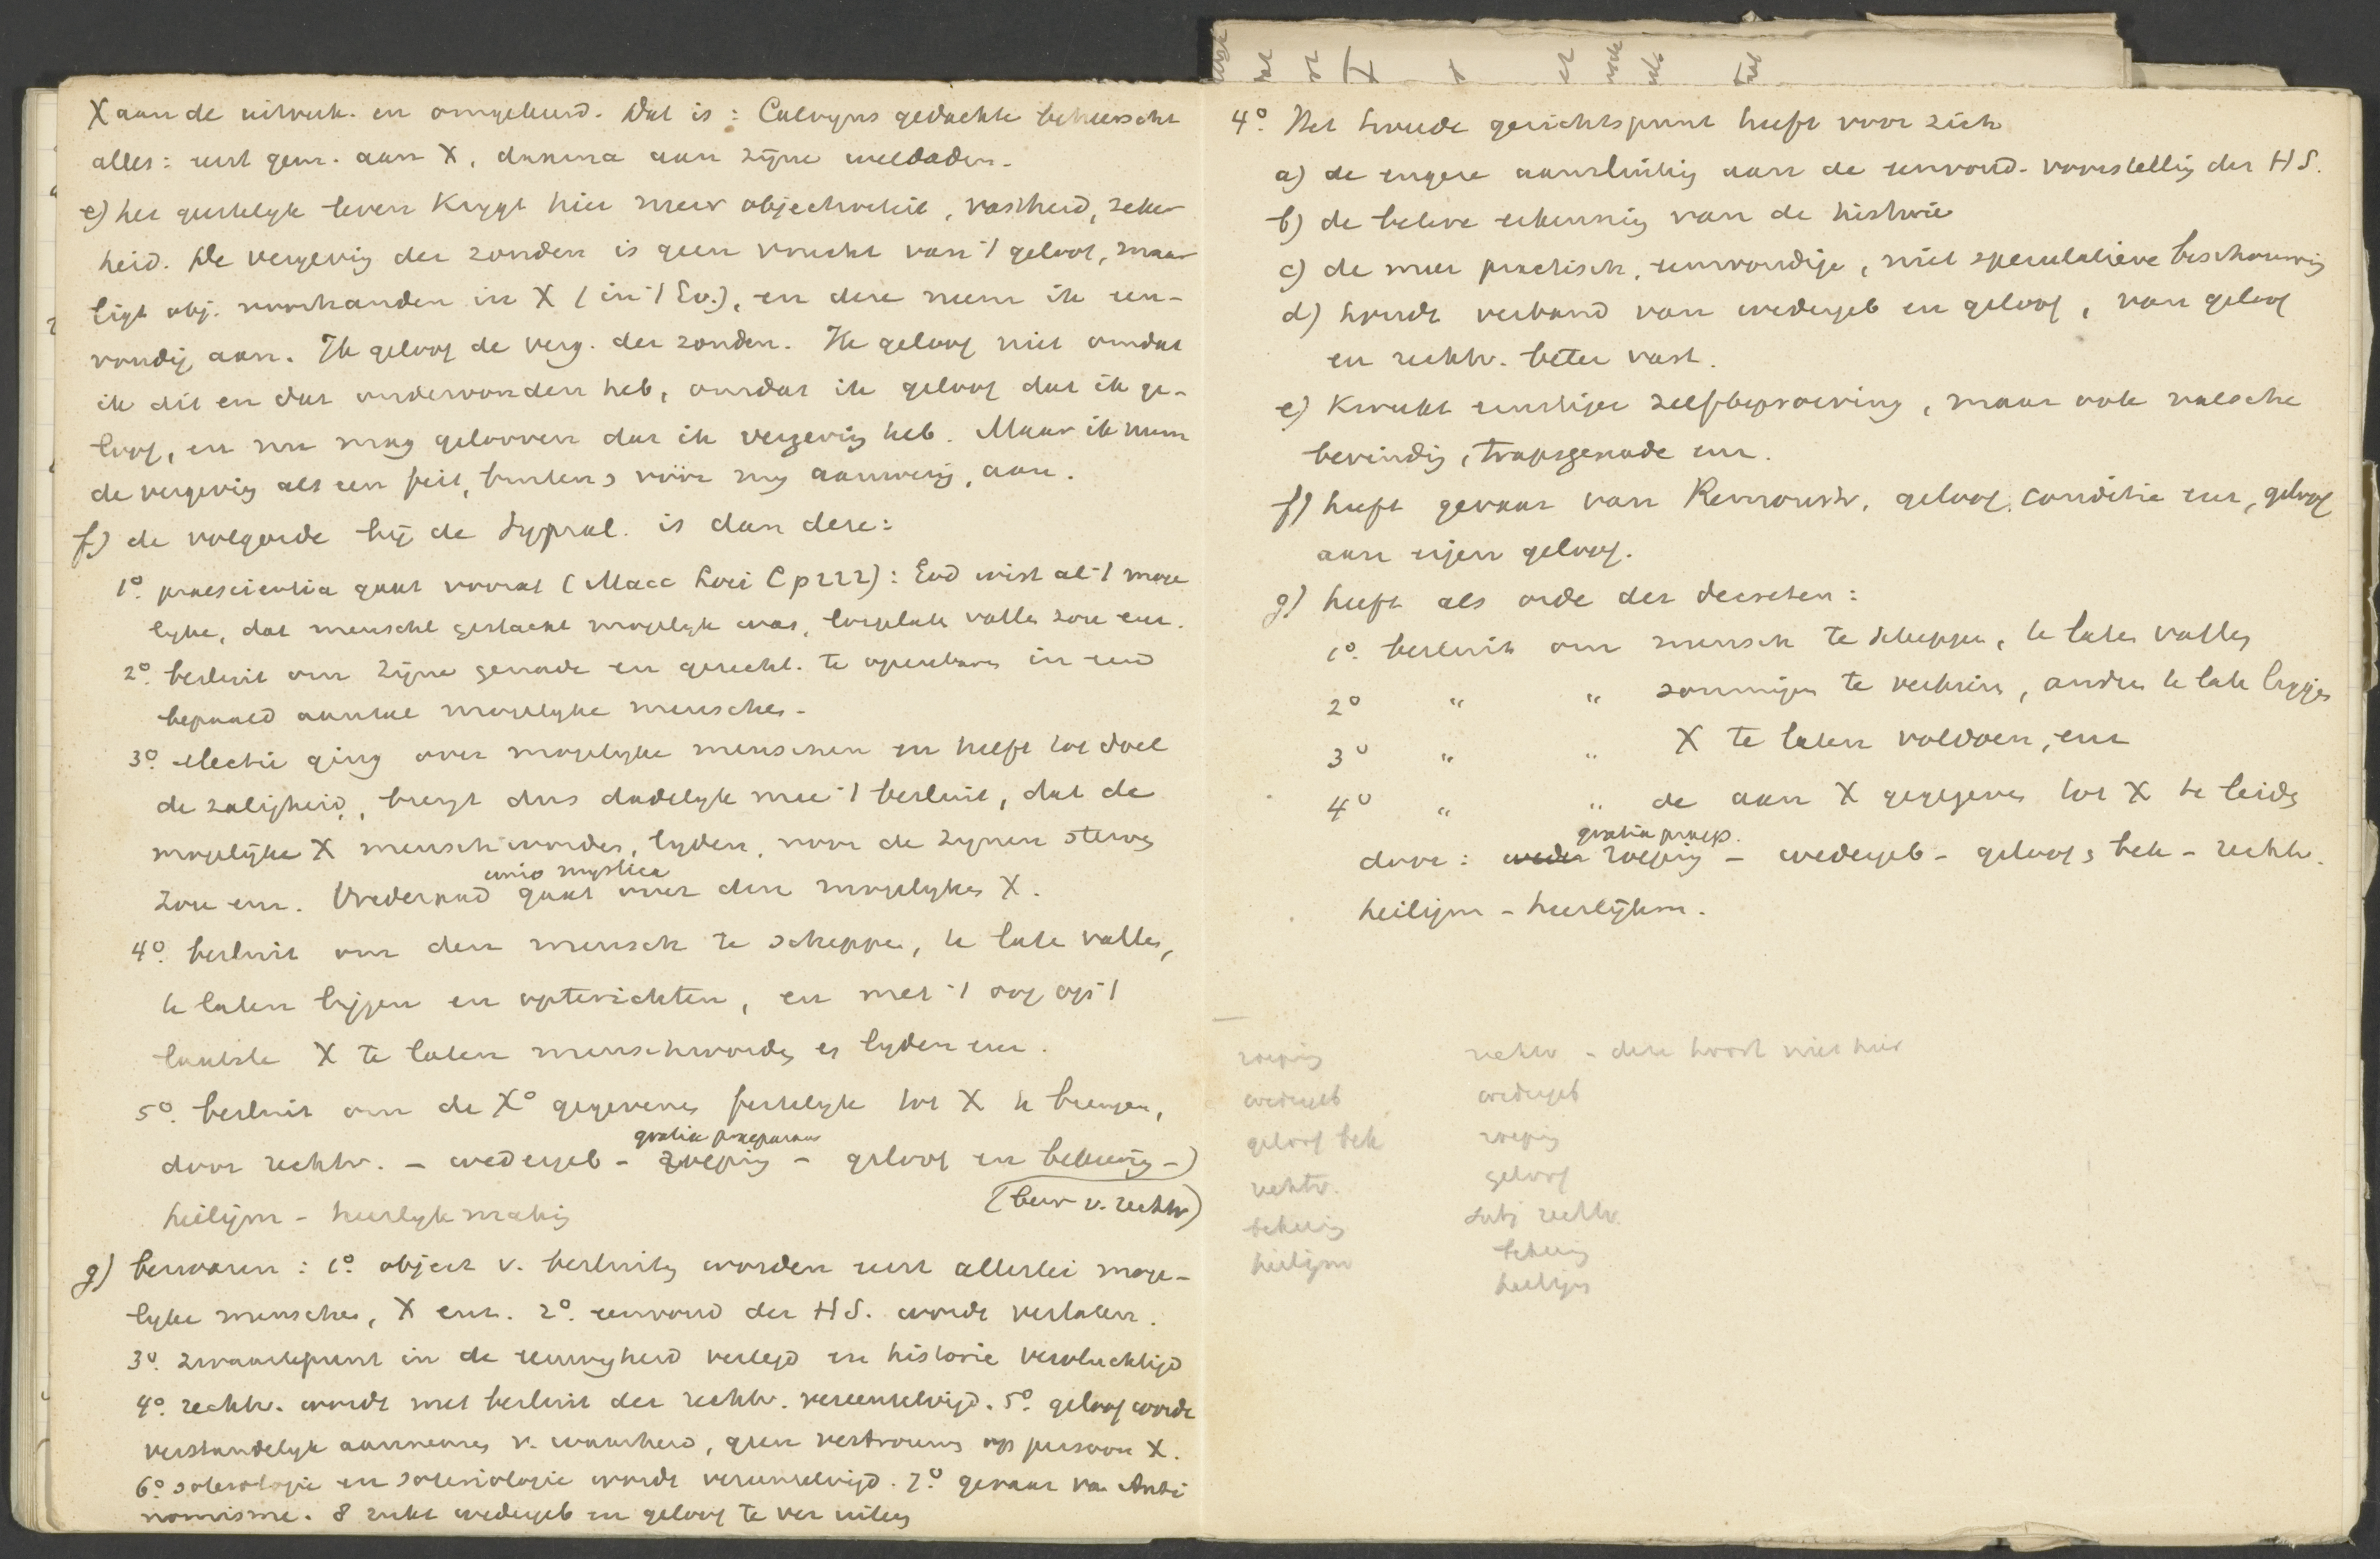 X aan de uitverk. en omgekeerd. Dat is: Calvyns gedachte beheerscht
alles: eerst gem. aan X, daarna aan zijne weldaden.
e) het geestelyk leven krygt hier meer objectiviteit, vastheid, zeker
heid. De vergeving der zonden is geen vrucht van 't geloof, maar
ligt obj. voorhanden in X (in 't Ev.), en deze neem ik een-
voudig aan. Ik geloof de verg. der zonden. Ik geloof niet omdat
ik dit en dat ondervonden heb, omdat ik geloof dat ik ge-
loof, en nu mag gelooven dat ik vergeving heb. Maar ik neem
de vergeving als een feit, buiten & vóór my aanwezig, aan.
f) de volgorde bij de Supral. is dan deze:
1º. praescientia gaat vooraf (Macc Loci C p 222): God wist al 't moge
lyke, dat menschel geslacht mogelyk was, losgelaten vallen zou enz.
2º. besluit om Zijne genade en gerecht. te openbaren in een
bepaald aantal mogelyke menschen.
3º. electie ging over mogelyke menschen en heeft tot doel
de zaligheid, brengt dus dadelyk mee 't besluit, dat de
mogelijke X mensch worden, lyden, voor de zynen sterven
unio mystica
zou enz. Vrederaad gaat over den mogelyken X.
4º. besluit om den mensch te scheppen, te laten vallen,
te laten liggen en opterichten, en met 't oog op 't
laatste X te laten menschworden en lyden enz.
5º. besluit om de Xº gegevenen feitelyk tot X te brengen,
gratia praeparans
door rechtv. - wedergeb - roeping - geloof en bekeering -
(bew v. rechtv)
heiligm - heerlykmaking
g) bezwaren: 1º. object v. besluiten worden eerst allerlei moge-
lyke menschen, X enz. 2º. eenvoud der HS. wordt verlaten.
3º. zwaartepunt in de eeuwigheid verlegd en historie vervluchtigd
4º. rechtv. wordt met besluit der rechtv. vereenzelvigd. 5º. geloof wordt
verstandelyk aannemen v. waarheid, geen vertrouwen op persoon X.
6º. soterologie en soteriologie wordt vereenzelvigd. 7º. gevaar van Anti
nomisme. 8 zucht wedergeb en geloof te ver
4º. Het tweede gezichtspunt heeft voor zich
a) de engere aansluiting aan de eenvoud. voorstelling der HS.
b) de betere erkenning van de historie
c) de meer practisch, eenvoudige, niet speculatieve beschouwing
d) houdt verband van wedergeb en geloof, van geloof
en rechtv. beter vast.
e) kweekt ernstiger zelfbeproeving, maar ook valsche
bevinding, trapsgenade enz.
f) heeft gevaar van Remonstr. geloof, conditie enz, geloof
aan eigen geloof.
g) heeft als orde der decreten:
1º. besluit om mensch te scheppen, te laten vallen
2º " " sommigen te verkiezen, andere te laten liggen
3º " " X te laten voldoen, enz
4º " " de aan X gegevenen tot X te leiden
gratia praep.
door: roeping - wedergeb - geloof & bek - rechtv.
heiligm - heerlijkm.
roeping rechtv - deze hoort niet hier
wedergeb wedergeb
geloof bek roeping
rechtv. geloof
bekeering subj rechtv.
heiligm bekeering
heiligm